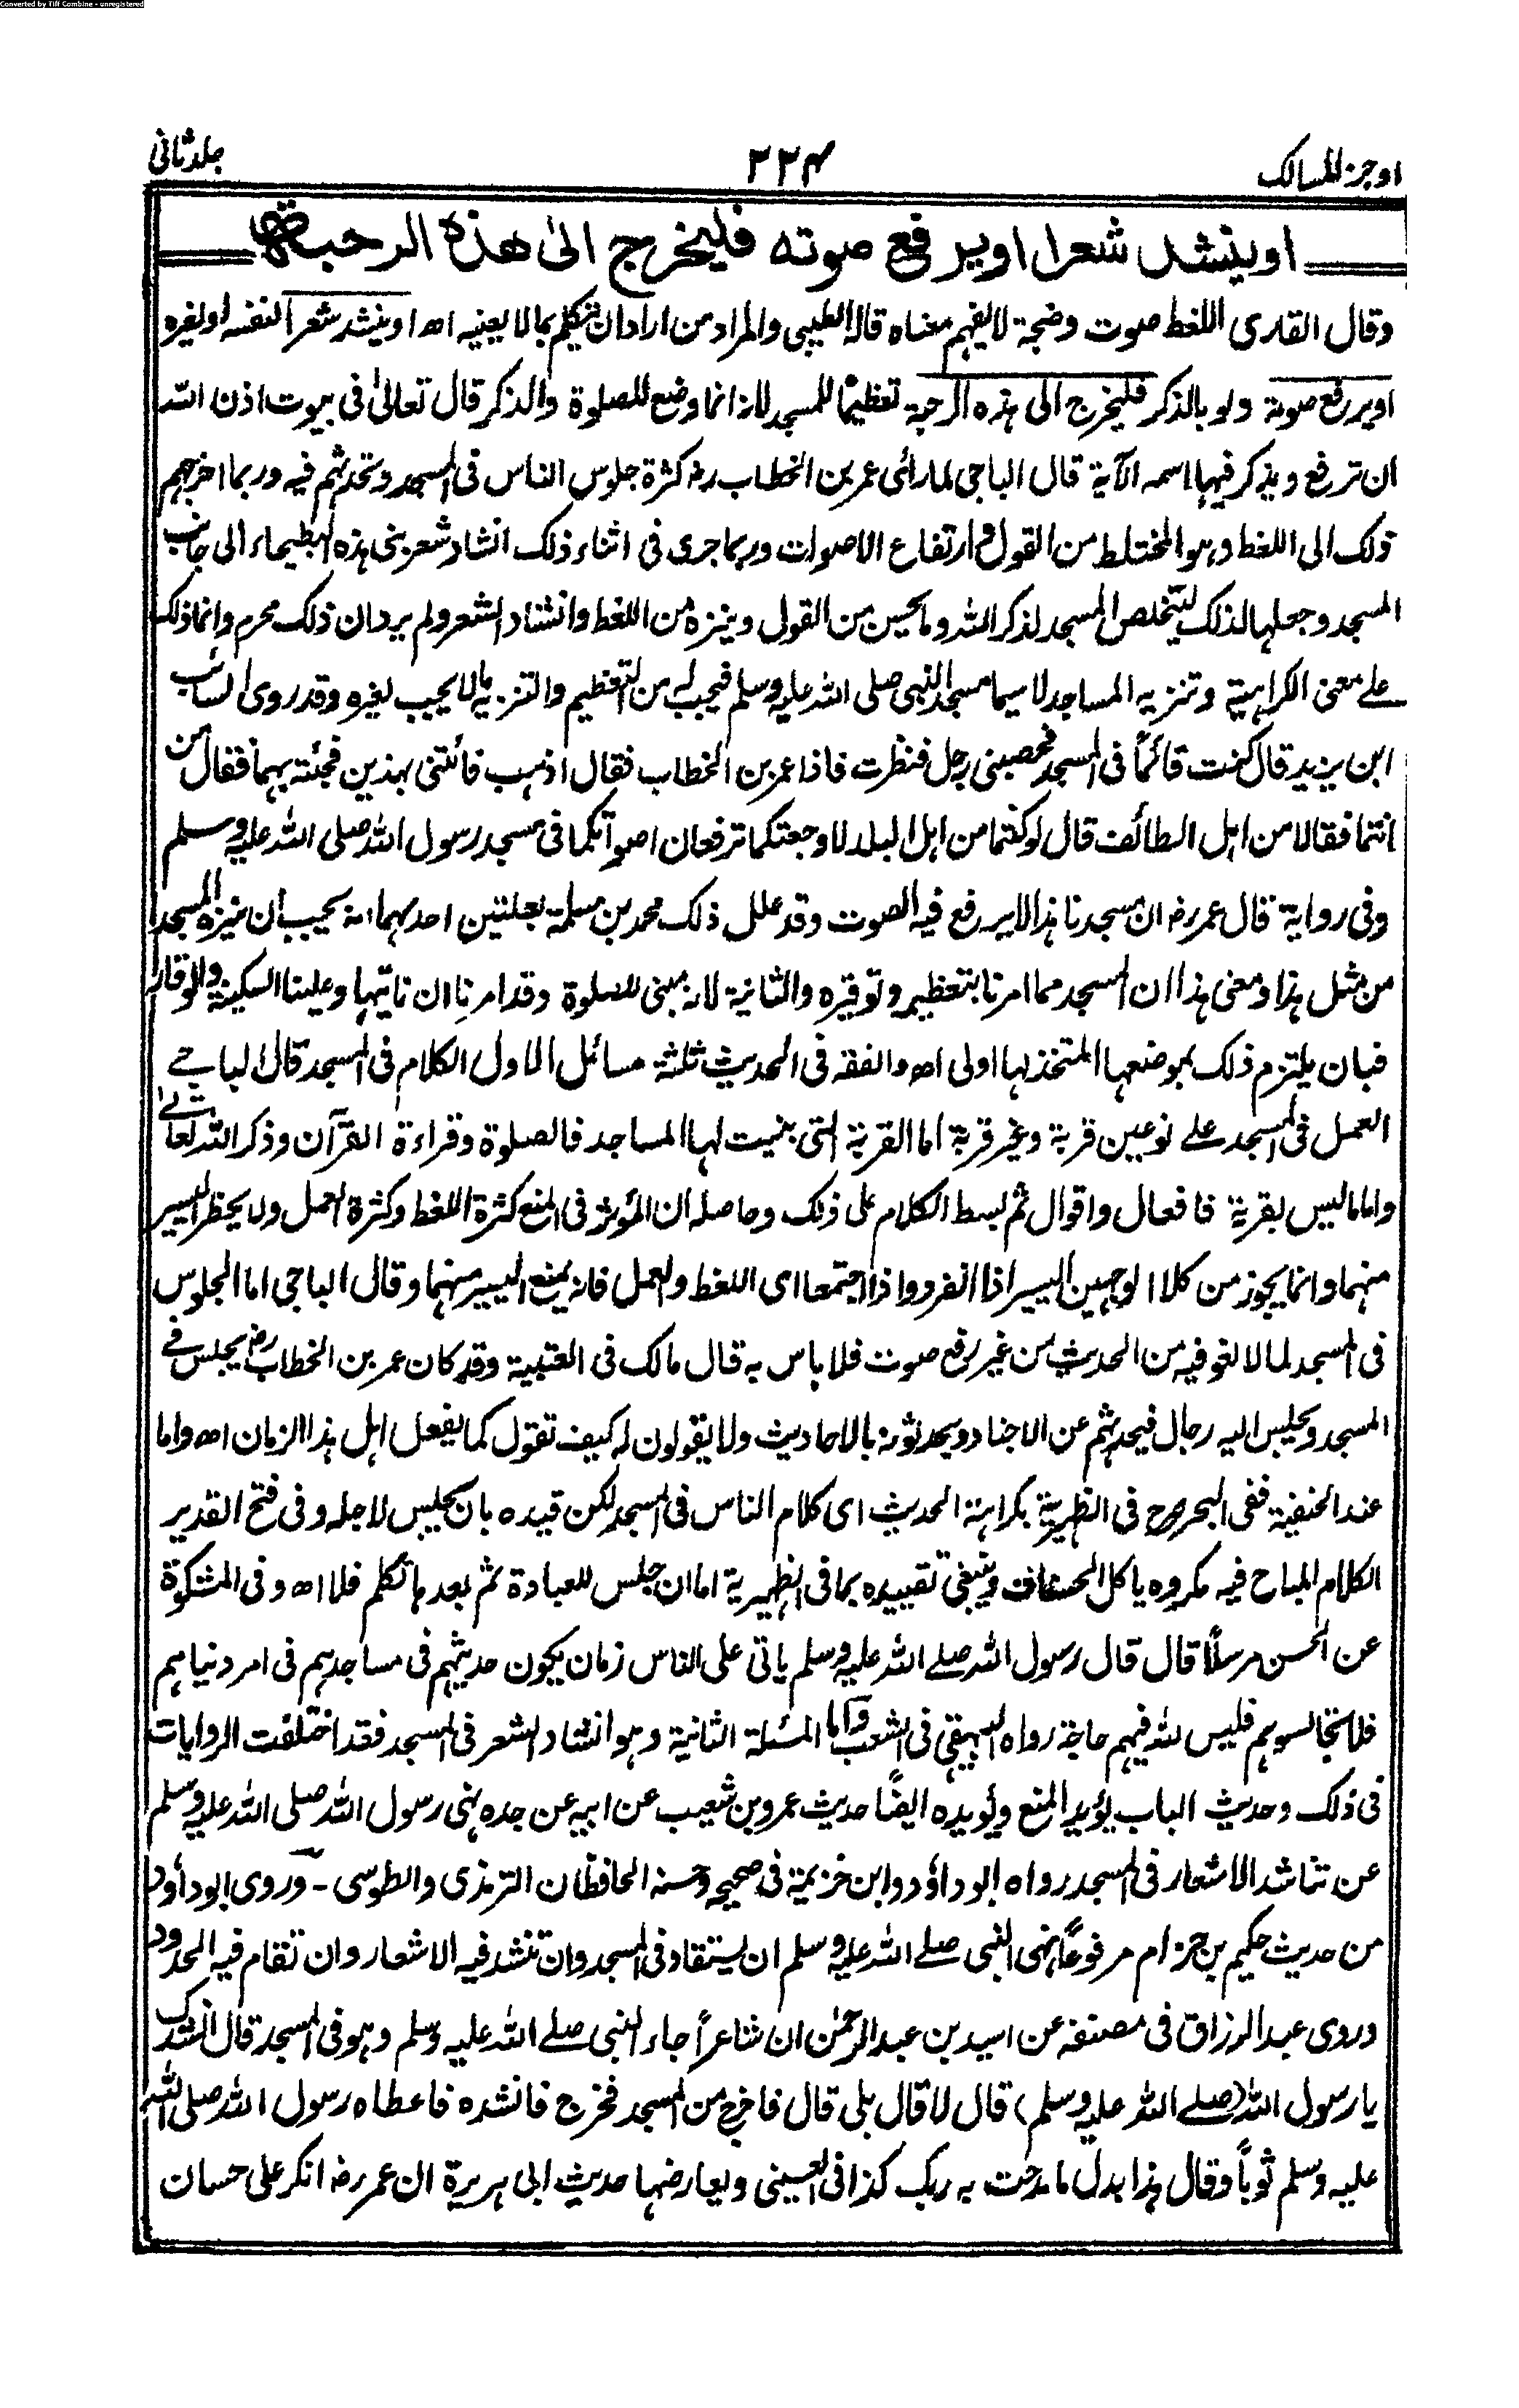 Converted by Tiff Combine - unregistered
اوجز المسالک
۲۲۴
جلد ثانی
او ینشد شعرا او یرفع صوته فلیخرج الیٰ هذه الرحبة
وقال القاری اللغط صوت وضجة لا یفهم معناه قاله الطیبی والمراد من اراد ان یتکلم بما لا یعنیه اھ او ینشد شعراً لنفسه او لغیره
او یرفع صوته ولو بالذکر فلیخرج الی هذه الرحبة تعظیمًا للمسجد لانه انما وضع للصلوة والذکر قال تعالیٰ فی بیوت اذن اللہ
ان ترفع ویذکر فیها اسمه الآیة قال الباجی لما رأی عمر بن الخطاب رضہ کثرة جلوس الناس فی المسجد وتحدثهم فیه وربما اخرجهم
ذلک الی اللغط وهو المختلط من القول وارتفاع الاصوات وربما جری فی اثناء ذلک انشاد شعر بنی هذه البطیحاء الی جانب
المسجد وجعلها لذلک لیتخلص المسجد لذکر اللہ وما یحسن من القول وینزه من اللغط وانشاد الشعر ولم یرد ان ذلک محرم وانما ذلک
علے معنی الکراهیة وتنزیه المساجد لا سیما مسجد النبی صلی اللہ علیه وسلم فیجب له من التعظیم والتنزیه ما لا یجب لغیره وقد روی السائب
ابن یزید قال کنت قائمًا فی المسجد فحصبنی رجل فنظرت فاذا عمر بن الخطاب فقال اذهب فائتنی بهذین فجئته بهما فقال من
انتما فقالا من اهل الطائف قال لو کنتما من اهل البلد لاوجعتکما ترفعان اصواتکما فی مسجد رسول اللہ صلی اللہ علیه وسلم
وفی روایة قال عمر رضہ ان مسجدنا هذا لا یرفع فیه الصوت وقد علل ذلک محمد بن مسلمة بعلتین احدهما انه یجب ان ینزه المسجد
من مثل هذا ومعنی هذا ان المسجد مما امرنا بتعظیمه وتوقیره والثانیة لانه مبنی للصلوة وقد امرنا ان ناتیها وعلینا السکینة والوقار
فبان یلتزم ذلک بموضعها المتخذ لها اولی اھ والفقه فی الحدیث ثلثة مسائل الاول الکلام فی المسجد قال الباجے
العمل فی المسجد علے نوعین قربة وغیر قربة اما القربة التی بنیت لها المساجد فالصلوة وقراءة القرآن وذکر اللہ تعالےٰ
واما ما لیس بقربة فافعال واقوال ثم بسط الکلام علی ذلک وحاصله ان المؤثر فی المنع کثرة اللغط وکثرة العمل ولا یحظر الیسیر
منهما وانما یجوز من کلا الوجهین الیسیر اذا انفرد واذا اجتمعا ای اللغط والعمل فانه یمنع الیسیر منهما وقال الباجی اما الجلوس
فی المسجد لما لا لغو فیه من الحدیث من غیر رفع صوت فلا باس به قال مالک فی العتبیة وقد کان عمر بن الخطاب رضہ یجلس فے
المسجد ویجلس الیه رجال فیحدثهم عن الاجناد ویحدثونه بالاحادیث ولا یقولون له کیف تقول کما یفعل اهل هذا الزمان اھ واما
عند الحنفیة ففی البحر صرح فی الظهیریة بکراهة الحدیث ای کلام الناس فی المسجد لکن قیده بان یجلس لاجله وفی فتح القدیر
الکلام المباح فیه مکروه یاکل الحسنات وینبغی تقییده بما فی الظهیریة اما ان جلس للعبادة ثم بعدها تکلم فلا اھ وفی المشکوة
عن الحسن مرسلًا قال قال رسول اللہ صلے اللہ علیه وسلم یاتی علی الناس زمان یکون حدیثهم فی مساجدهم فی امر دنیاهم
فلا تجالسوهم فلیس للہ فیهم حاجة رواه البیهقی فی الشعب واما المسئلة الثانیة وهو انشاد الشعر فی المسجد فقد اختلفت الروایات
فی ذلک وحدیث الباب یؤید المنع ویؤیده ایضًا حدیث عمرو بن شعیب عن ابیه عن جده نهی رسول اللہ صلی اللہ علیه وسلم
عن تناشد الاشعار فی المسجد رواه ابو داؤد وابن خزیمة فی صحیحه وحسنه الحافظان الترمذی والطوسی ۔ وروی ابو داؤد
من حدیث حکیم بن حزام مرفوعًا نهی النبی صلے اللہ علیه وسلم ان یستقاد فی المسجد وان تنشد فیه الاشعار وان تقام فیه الحدود
وروی عبد الرزاق فی مصنفه عن اسید بن عبد الرحمٰن ان شاعراً جاء النبی صلے اللہ علیه وسلم وهو فی المسجد قال انشدک
یا رسول اللہ (صلے اللہ علیه وسلم) قال لا قال بلی قال فاخرج من المسجد فخرج فانشده فاعطاه رسول اللہ صلی اللہ
علیه وسلم ثوباً وقال هذا بدل ما مدحت به ربک کذا فی العینی ویعارضها حدیث ابی هریرة ان عمر رضہ انکر علی حسان